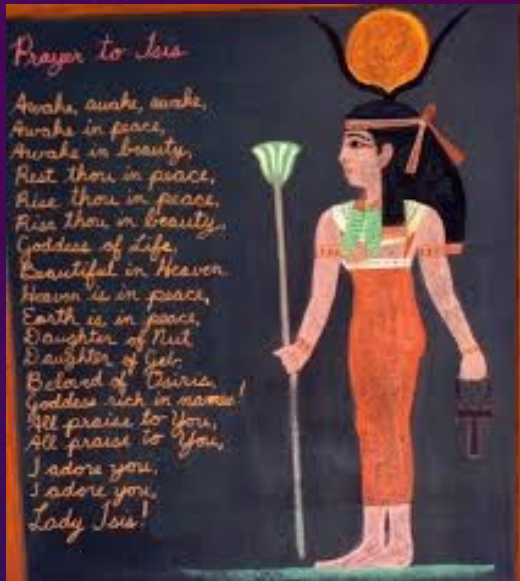 Prayer to Isis
Awake, awake, awake,
Awake in peace,
Awake in beauty,
Rest thou in peace,
Rise thou in peace,
Rise thou in beauty,
Goddess of Life,
Beautiful in Heaven.
Heaven is in peace,
Earth is in peace,
Daughter of Nut
Daughter of Geb.
Beloved of Osiris,
Goddess rich in names!
All praise to You,
All praise to You,
I adore you,
I adore you,
Lady Isis!